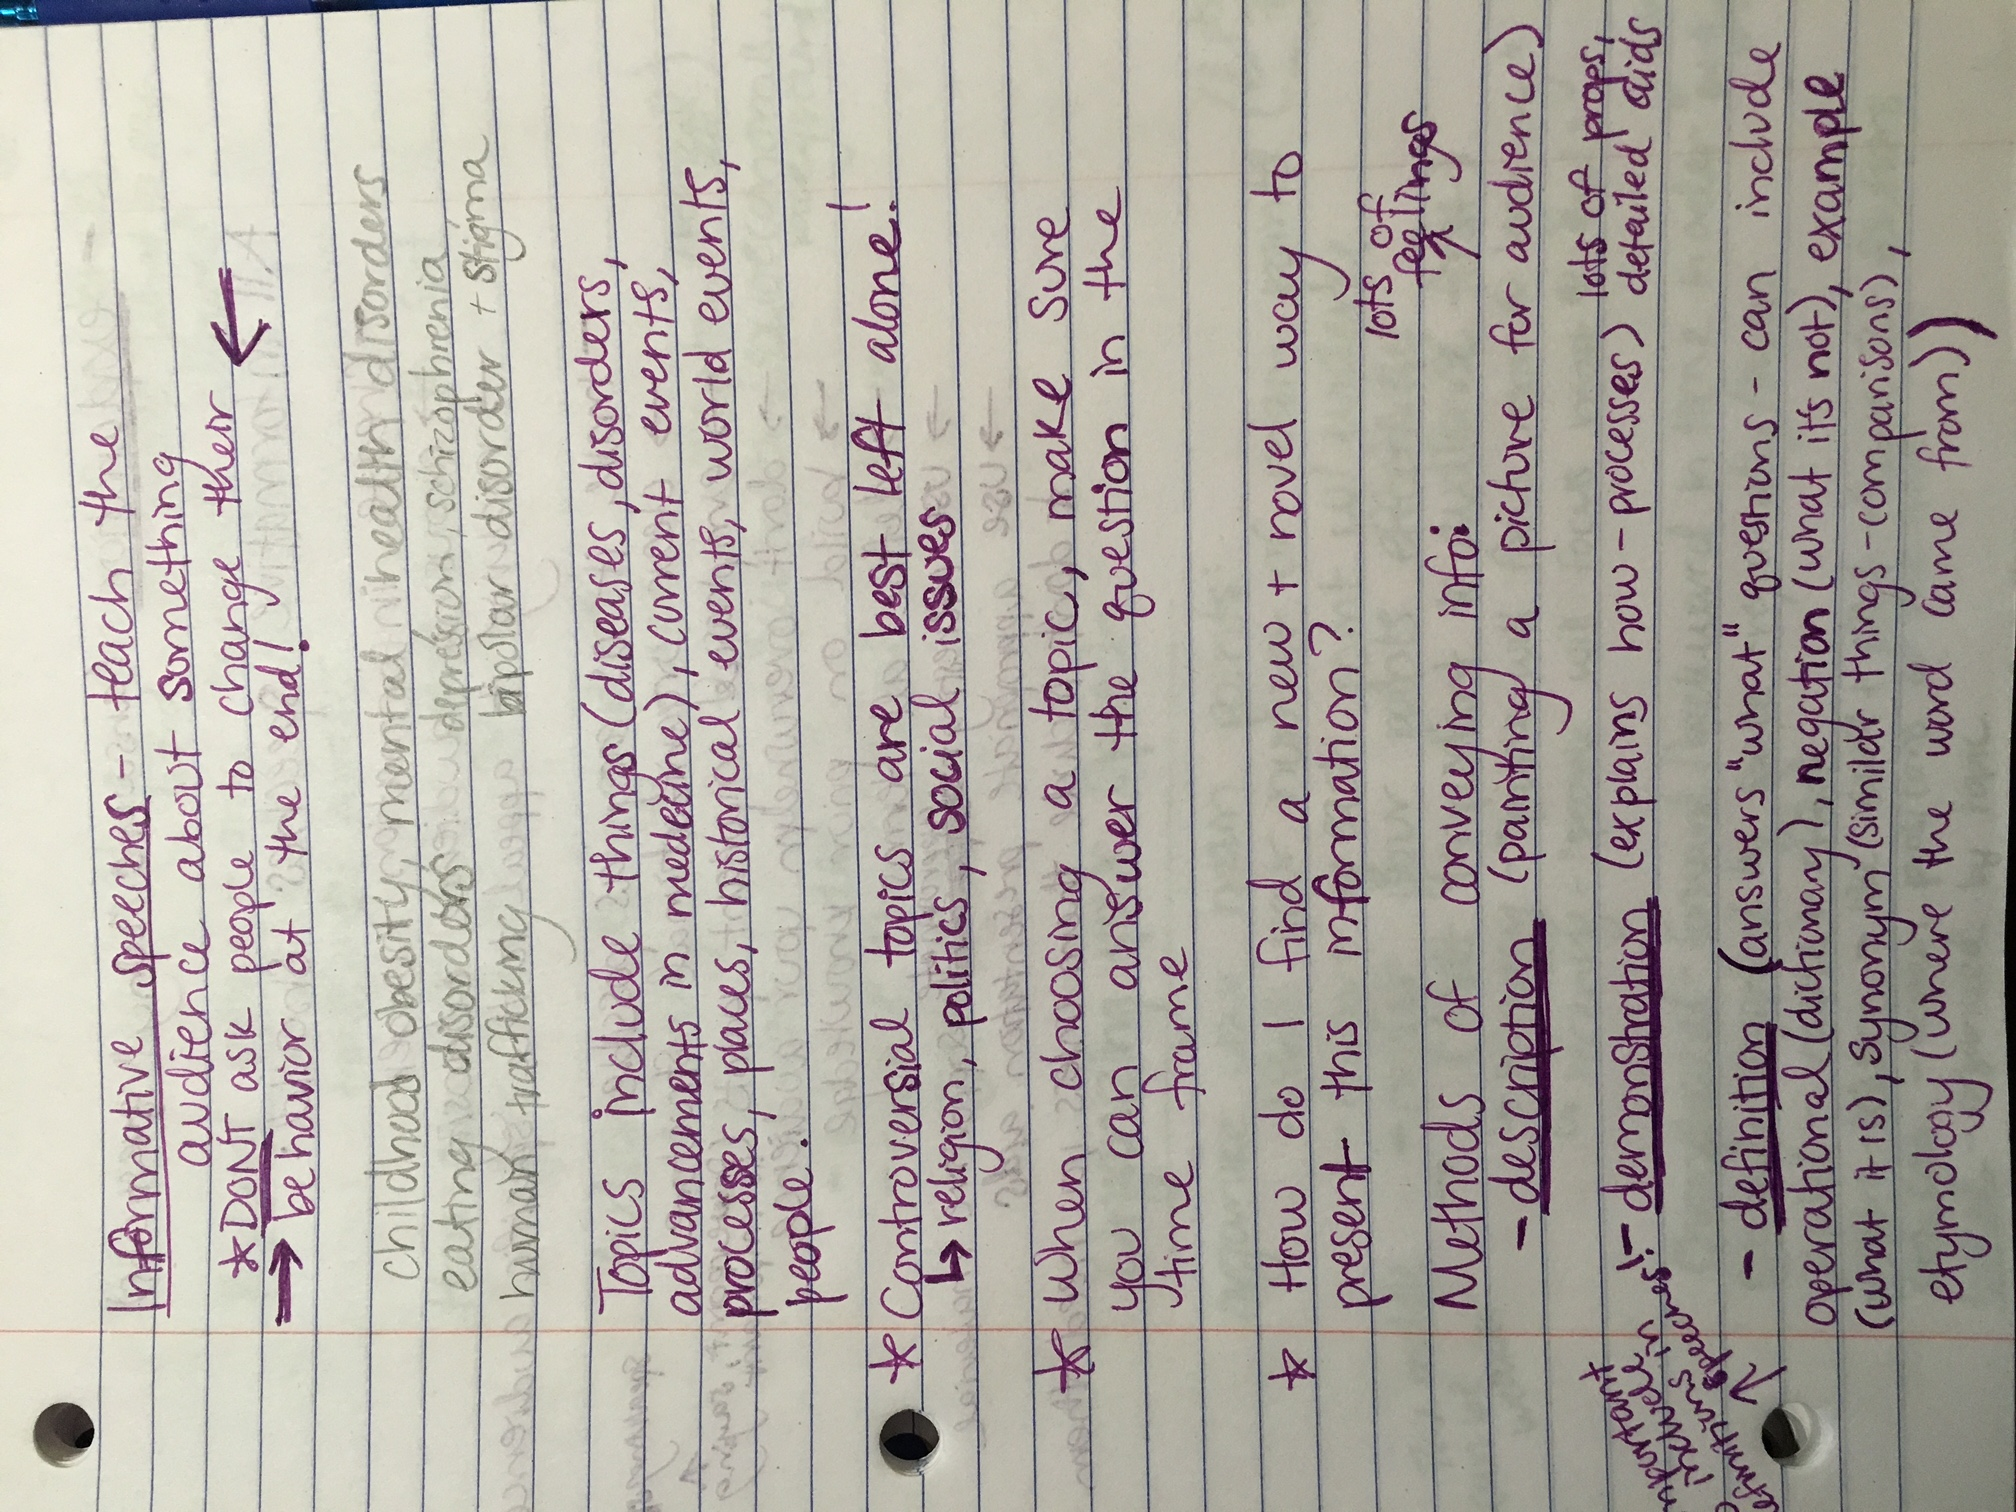 Informative speeches - teach the
audience about something
*DONT ask people to change their ←
→ behavior at the end!
childhood obesity, mental health disorders
eating disorders depression, schizophrenia
human trafficking bipolar disorder + stigma
Topics include things (diseases, disorders,
advancements in medecine), current events,
processes, places, historical events, world events,
people.
* Controversial topics are best left alone!
↳ religion, politics, social issues
* When choosing a topic, make sure
you can answer the question in the
time frame
* How do I find a new + novel way to
present this information?
Methods of conveying info:
lots of
feelings
- description (painting a picture for audience)
- demonstration (explains how - processes) lots of props,
detailed aids
important
include in
speeches!
- definition (answers "what" questions - can include
operational (dictionary), negation (what it's not), example
(what it is), synonym (similar things - comparisons),
etymology (where the word came from))